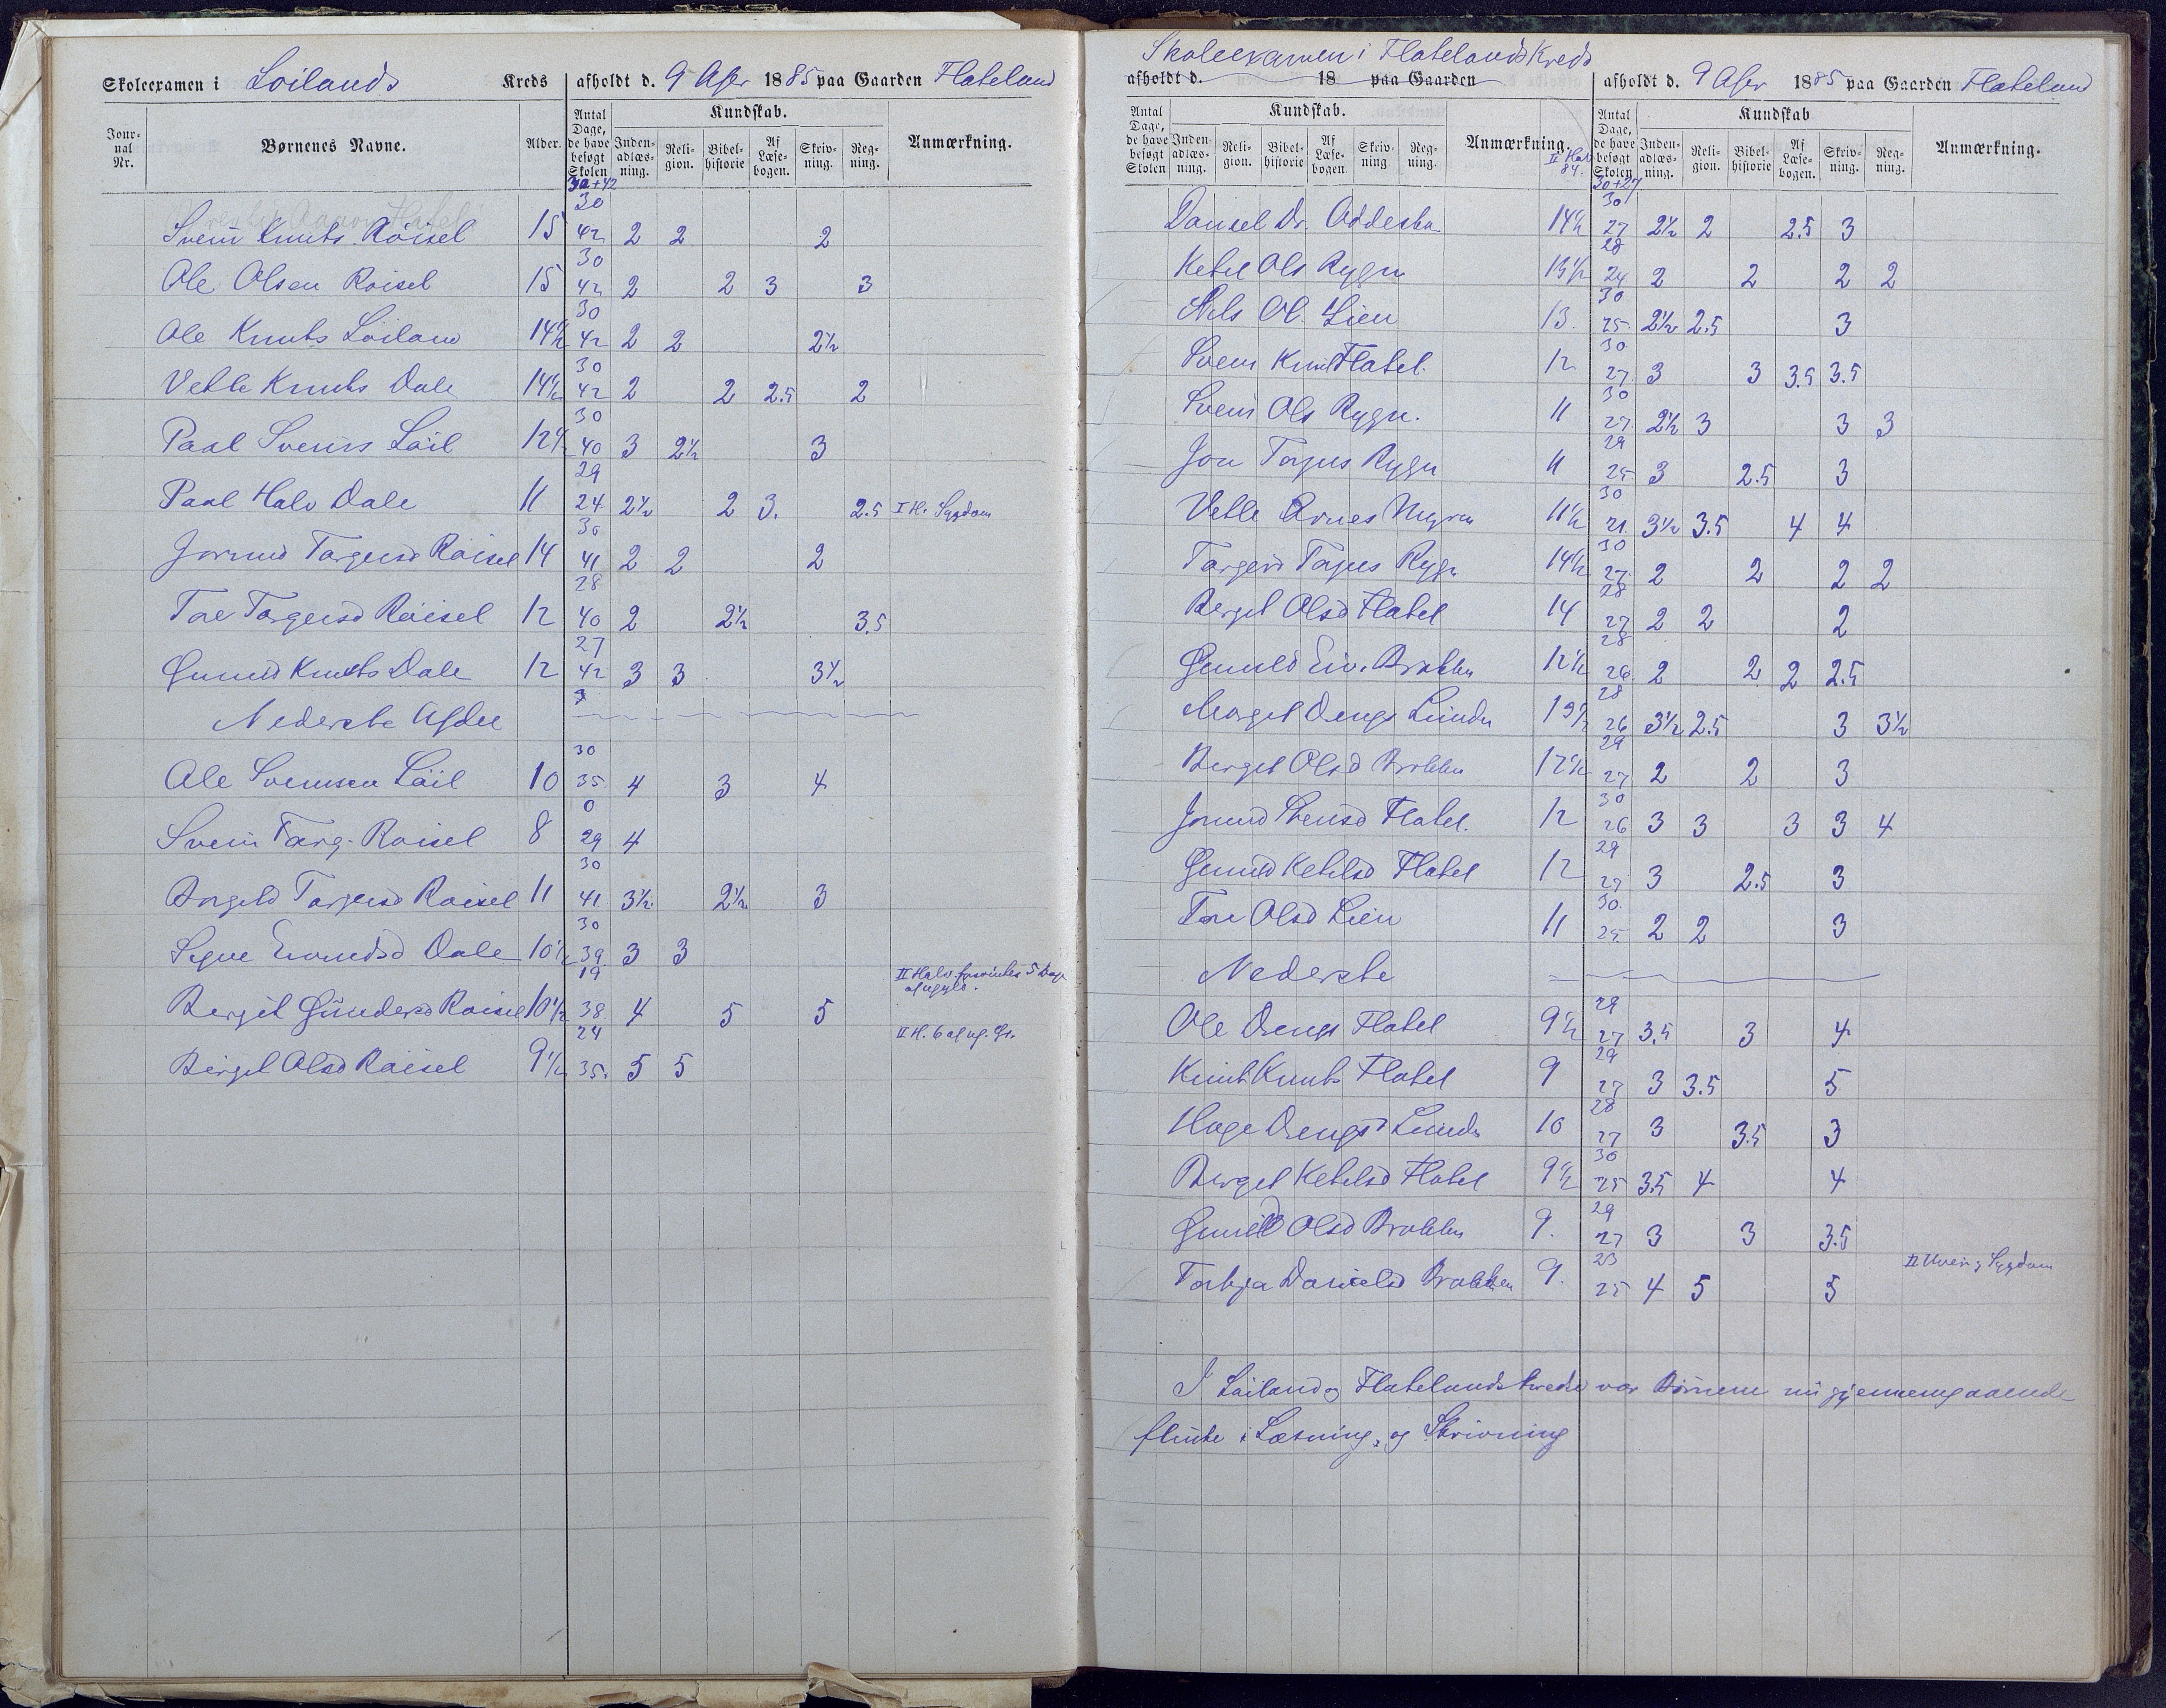 Skoleexamen i Loilands Kreds afholdt d. 9 Apr 1885 paa Gaarden Flateland
Jour-
nal
Nr.
Børnenes Navne.
Alder.
Antal
Dage,
de have
besøgt
Skolen
30+42
Kundskab.
Inden-
adlæs-
ning.
Reli-
gion.
Bibel-
historie
Af
Læse-
bogen.
Skriv-
ning.
Reg-
ning.
Anmærkning.
Svein Knuts Röisel 15 30 42 2 2 2
Ole Olsen Roisel 15 30 42 2 2 3 3
Ole Knuts Loiland 14½ 30 42 2 2 2½
Vetle Knuts Dale 14½ 30 42 2 2 2.5 2
Paal Sveins Löil 12½ 30 40 3 2½ 3
Paal Halv Dale 11 29 24 2½ 2 3. 2.5 I H. Sygdom
Jorund Targeisd Röisel 14 30 41 2 2 2
Tone Torgeisd Röisel 12 28 40 2 2½ 3.5
Gunild Knutsd Dale 12 27 42 3 3 3½
Nederste Afdel
Ole Svensen Löil 10 30 35 4 3 4
Svein Targ. Roisel 8 0 29 4
Borgild Torgeisd Roisel 11 30 41 3½ 2½ 3
Signe Eivindsd Dale 10½ 30 39 3 3
II Halv. forsømte 5 Dage
af ugyld.
Bergit Gundersd Roisel 10½ 19 38 4 5 5
II H. 6 af ug. Gr.
Birgit Olsd Röisel 9½ 24 35. 5 5
Skoleexamen i Flatelands Kreds
afholdt d. 18 paa Gaarden
afholdt d. 9 Apr 1885 paa Gaarden Flateland
Antal
Dage,
de have
besøgt
Skolen
Kundskab.
Inden-
adlæs-
ning.
Reli-
gion.
Bibel-
historie
Af
Læse-
bogen
Skriv-
ning
Reg-
ning.
Anmærkning.
II Hal
84.
Antal
Dage,
de have
besøgt
Skolen
30+27
Kundskab
Inden-
adlæs-
ning.
Reli-
gion.
Bibel-
historie
Af
Læse-
bogen.
Skriv-
ning.
Reg-
ning.
Anmærkning.
Daniel Dr. Oddesta 14½ 30 27 2½ 2 2.5 3
Ketel Ols Rygn 13½ 28 24 2 2 2 2
Nils Ol. Lien 13. 30 25 2½ 2.5 3
Svein Knut Flatel. 12 30 27 3 3 3.5 3.5
Svein Ols Rygn. 11 30 27 2½ 3 3 3
Jon Torjus Rygn 11 29 25 3 2.5 3
Vetle Arnes Myren 11½ 30 21. 3½ 3.5 4 4
Torgerd Tarjus Rygn 14½ 30 27 2 2 2 2
Berget Olsd Flatel 14 28 27 2 2 2
Gunild Eiv. Brokken 12½ 28 26 2 2 2 2.5
Margit Drengs Lunden 13½ 28 26 3½ 2.5 3 3½
Berget Olsd Brokken 12½ 29 27 2 2 3
Jorund Svensd Flatel. 12 30 26 3 3 3 3 4
Gunild Ketilsd Flatel 12 29 27 3 2.5 3
Tone Olsd Lien 11 30. 25 2 2 3
Nederste
Ole Drengs Flatel 9½ 29 27 3.5 3 4
Knut Knuts Flatel 9 29 27 3 3.5 5
Hage Drengsd Lunde 10 28 27 3 3.5 3
Berget Ketilsd Flatel 9½ 30 25 3.5 4 4
Gunild Olsd Brokken 9. 29 27 3 3 3.5
Torbjør Danielsd Brokken 9. 23 25 4 5 5
II Uveir og Sygdom
I Löiland og Flatelandskreds var Børnene nu gjennemgaaende
flinke i Læsning, og Skrivning